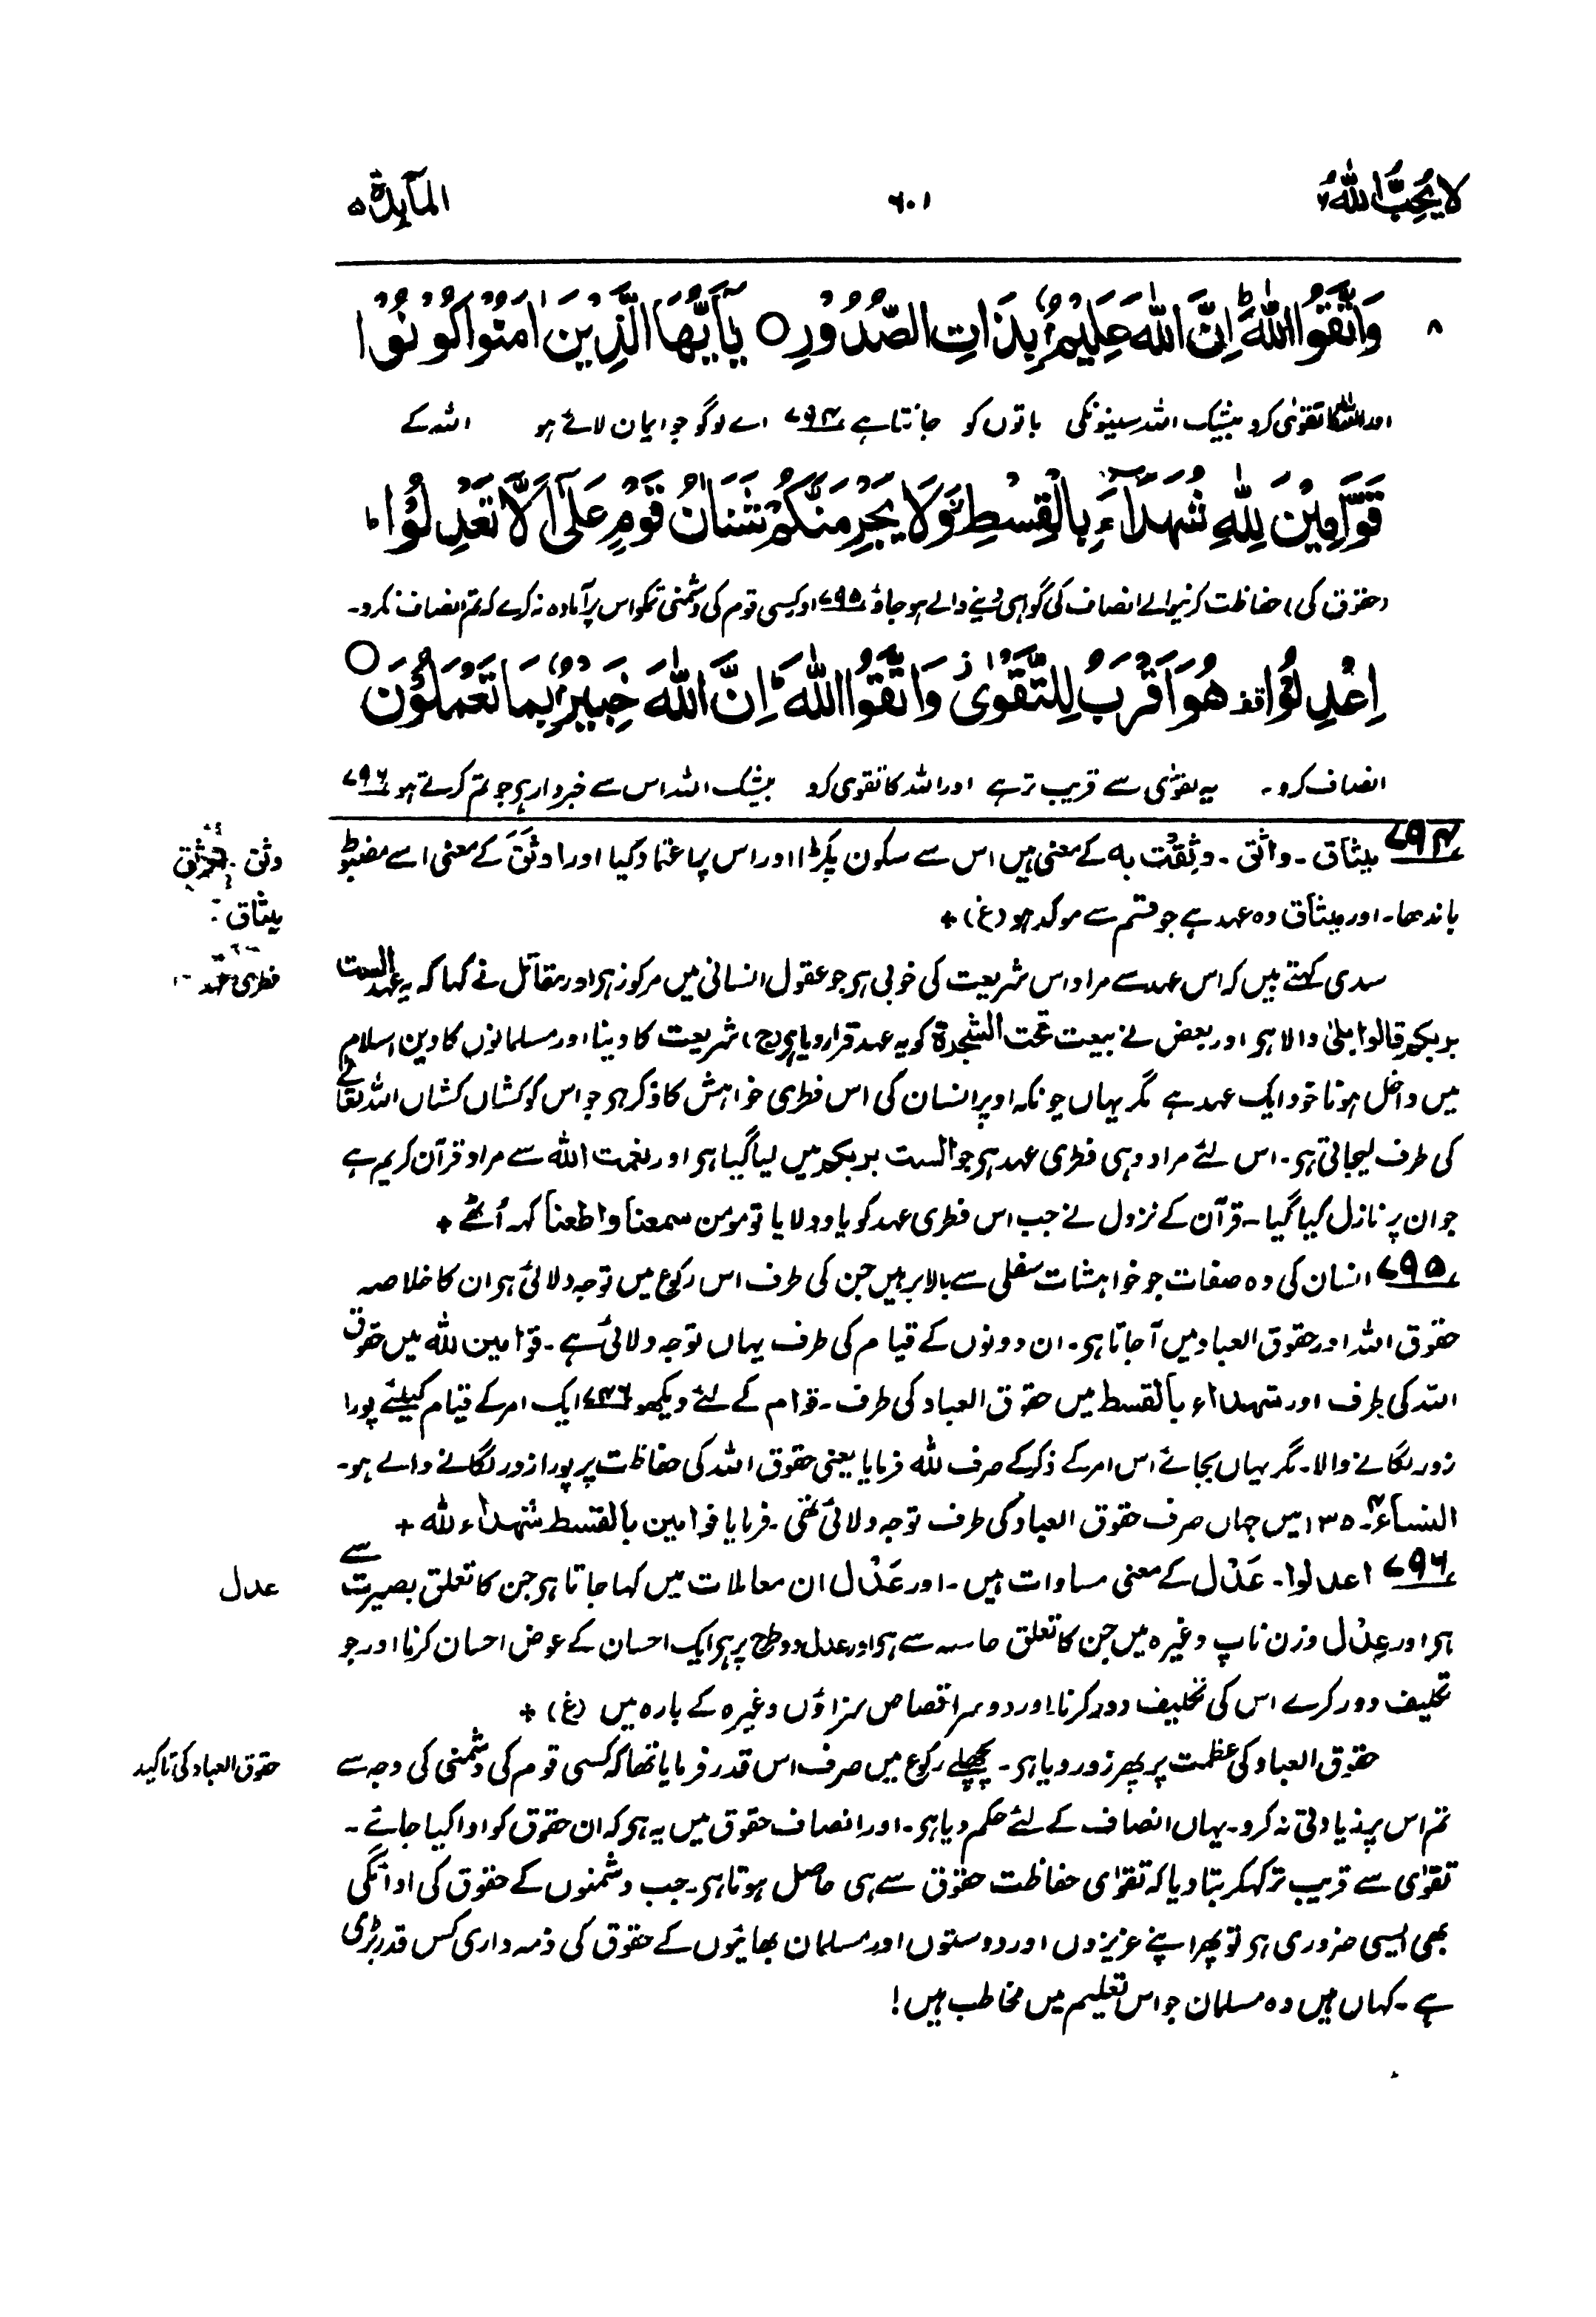 لا یحب اللہ ۶
۶۰۱
المآئدۃ ۵
۸
وَاتَّقُوا اللّٰهَ ؕ اِنَّ اللّٰهَ عَلِيْمٌۢ بِذَاتِ الصُّدُوْرِ ○ يٰۤاَيُّهَا الَّذِيْنَ اٰمَنُوْا كُوْنُوْا
اور اللہ کا تقویٰ کرو بیشک اللہ سینونکی باتوں کو جانتا ہے ۷۹۴ اے لوگو جو ایمان لائے ہو اللہ کے
قَوّٰمِيْنَ لِلّٰهِ شُهَدَآءَ بِالْقِسْطِ ز وَلَا يَجْرِمَنَّكُمْ شَنَاٰنُ قَوْمٍ عَلٰٓى اَلَّا تَعْدِلُوْا ؕ
(حقوق کی) حفاظت کرنیوالے انصاف کی گواہی دینے والے ہو جاؤ ۷۹۵ اور کسی قوم کی دشمنی تمکو اس پر آمادہ نہ کرے کہ تم انصاف نکرو۔
اِعْدِلُوْا قف هُوَ اَقْرَبُ لِلتَّقْوٰى ز وَاتَّقُوا اللّٰهَ ؕ اِنَّ اللّٰهَ خَبِيْرٌۢ بِمَا تَعْمَلُوْنَ ○
انصاف کرو۔ یہ تقوٰی سے قریب تر ہے اور اللہ کا تقویٰ کرو بیشک اللہ اس سے خبردار ہی جو تم کرتے ہو ۷۹۶
۷۹۴ میثاق۔ واثق۔ وثِقْت بہ کے معنی ہیں اس سے سکون پکڑا اور اس پر اعتماد کیا اور اَوثَقَ کے معنی اسے مضبوط
وثق
باندھا۔ اور میثاق وہ عہد ہے جو قسم سے موکد ہو (غ) +
میثاق
سدی کہتے ہیں کہ اس عہد سے مراد اس شریعت کی خوبی ہی جو عقول انسانی میں مرکوز ہی اور مقاتل نے کہا کہ یہ عہد الست
فطری عہد
بربکم قالوا بلیٰ والا ہی اور بعض نے بیعت تحت الشجرۃ کو یہ عہد قرار دیا ہی (ج) شریعت کا دینا اور مسلمانوں کا دین اسلام
میں داخل ہونا خود ایک عہد ہے مگر یہاں چونکہ اوپر انسان کی اس فطری خواہش کا ذکر ہی جو اس کو کشاں کشاں اللہ تعالےٰ
کی طرف لیجاتی ہی۔ اس لئے مراد وہی فطری عہد ہی جو الست بربکم میں لیا گیا ہی اور نعمت اللہ سے مراد قرآن کریم ہے
جو ان پر نازل کیا گیا۔ قرآن کے نزول نے جب اس فطری عہد کو یاد دلایا تو مومن سمعنا واطعنا کہہ اُٹھے +
۷۹۵ انسان کی وہ صفات جو خواہشات سفلی سے بالاہیں جن کی طرف اس رکوع میں توجہ دلائی ہی ان کا خلاصہ
حقوق اللہ اور حقوق العباد میں آجاتا ہی۔ ان دونوں کے قیام کی طرف یہاں توجہ دلائی ہے۔ قوامین للہ میں حقوق
اللہ کی طرف اور شہداء بالقسط میں حقوق العباد کی طرف۔ قوام کے لئے دیکھو ۷۴۶ ایک امر کے قیام کیلئے پورا
زور لگانے والا۔ مگر یہاں بجائے اس امر کے ذکر کے صرف للہ فرمایا یعنی حقوق اللہ کی حفاظت پر پورا زور لگانے والے ہو۔
النساء ۴۔۱۳۵ میں جہاں صرف حقوق العباد کی طرف توجہ دلائی تھی۔ فرمایا قوامین بالقسط شہداء للہ +
۷۹۶ اعدلوا۔ عَدْل کے معنی مساوات ہیں۔ اور عَدْل ان معاملات میں کہا جاتا ہی جن کا تعلق بصیرت سے
عدل
ہی اور عِدْل وزن ناپ وغیرہ میں جن کا تعلق حاسہ سے ہی اور عدل دو طرح پر ہی ایک احسان کے عوض احسان کرنا اور جو
تکلیف دور کرے اس کی تکلیف دور کرنا اور دوسرا قصاص سزاؤں وغیرہ کے بارہ میں (غ) +
حقوق العباد کی عظمت پر پھر زور دیا ہی۔ پچھلے رکوع میں صرف اس قدر فرمایا تھا کہ کسی قوم کی دشمنی کی وجہ سے
حقوق العباد کی تاکید
تم اس پر زیادتی نہ کرو۔ یہاں انصاف کے لئے حکم دیا ہی۔ اور انصاف حقوق میں یہ ہی کہ ان حقوق کو ادا کیا جائے۔
تقوٰی سے قریب تر کہکر بتا دیا کہ تقوٰی حفاظت حقوق سے ہی حاصل ہوتا ہی۔ جب دشمنوں کے حقوق کی ادائگی
بھی ایسی ضروری ہی تو پھر اپنے عزیزوں اور دوستوں اور مسلمان بھائیوں کے حقوق کی ذمہ داری کس قدر بڑی
ہے۔ کہاں ہیں وہ مسلمان جو اس تعلیم میں مخاطب ہیں!